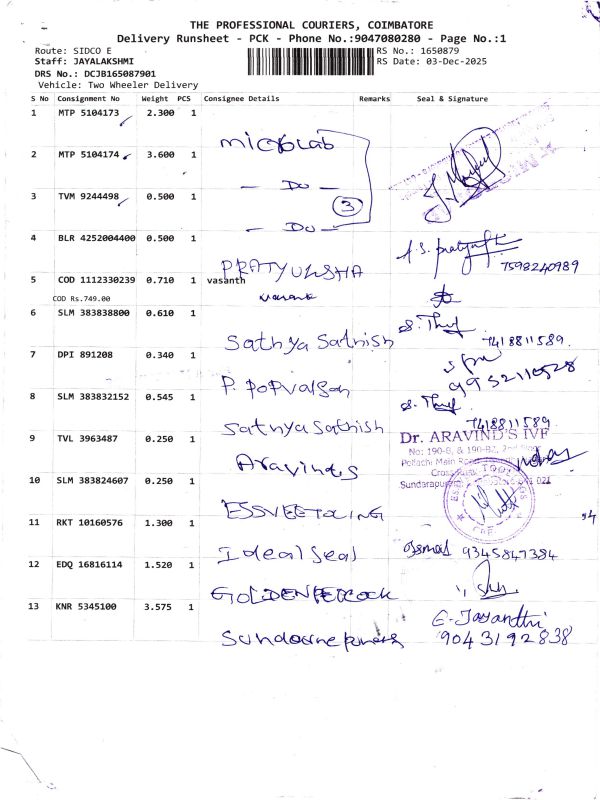 THE PROFESSIONAL COURIERS, COIMBATORE
Delivery Runsheet - PCK - Phone No.:9047080280 - Page No.:1
Route: SIDCO E
RS No.: 1650879
Staff: JAYALAKSHMI
RS Date: 03-Dec-2025
DRS No.: DCJB165087901
Vehicle: Two Wheeler Delivery
S No Consignment No Weight PCS Consignee Details Remarks Seal & Signature
1 MTP 5104173 2.300 1
microlab
2 MTP 5104174 3.600 1
— Do —
3 TVM 9244498 0.500 1
3
— Do —
4 BLR 4252004400 0.500 1
PRATYUKSHA
7598240989
5 COD 1112330239 0.710 1 vasanth
COD Rs.749.00
6 SLM 383838800 0.610 1
Sathya Sathish
7418811589
7 DPI 891208 0.340 1
P.
8 SLM 383832152 0.545 1
Sathya Sathish
7418811589
9 TVL 3963487 0.250 1
Dr. ARAVIND'S IVF
No: 190-B, & 190-B2, 2nd
Pollachi Main Road
Aravinds
Sundarapuram
021
10 SLM 383824607 0.250 1
ESSVEE TOOLING
11 RKT 10160576 1.300 1
Ideal Seal
9345847384
12 EDQ 16816114 1.520 1
GOLDEN PEACOCK
13 KNR 5345100 3.575 1
E. Jayanthi
9043192838